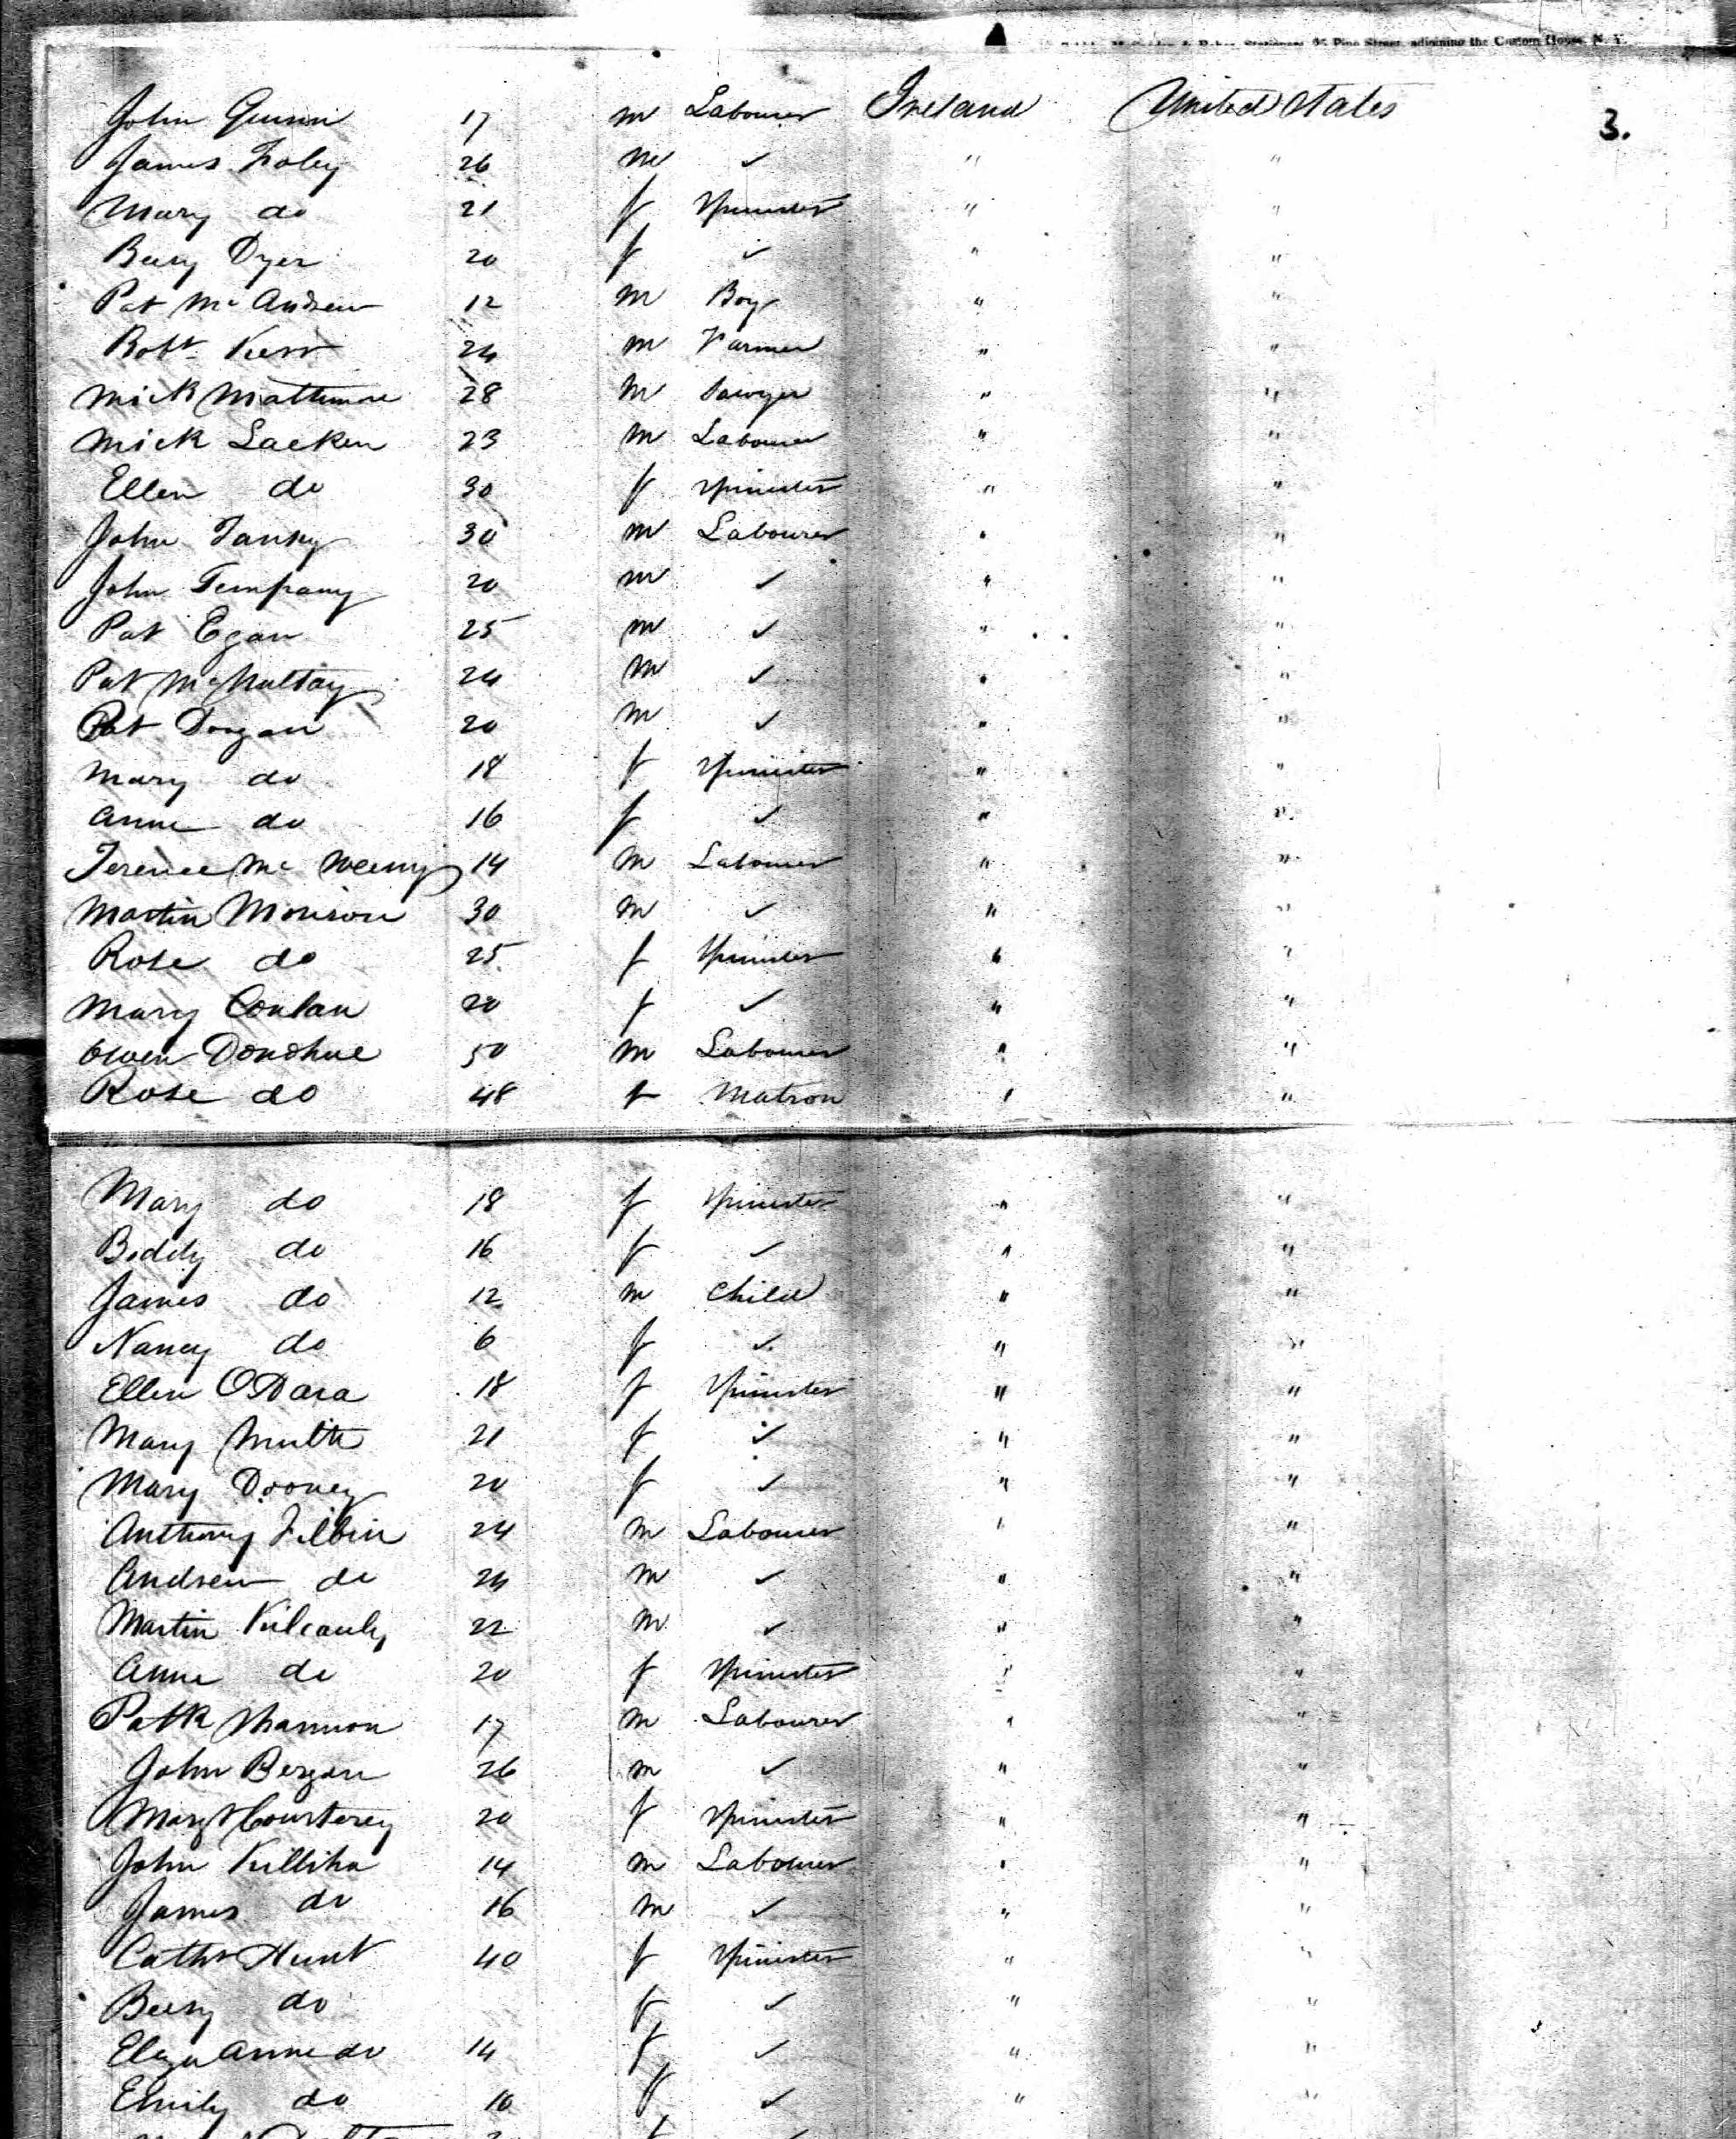 Stationers, 95 Pine Street, adjoining the Custom House, N. Y.
3.
John Quinn 17 m Labourer Ireland United States
James Foley 26 m ✓ " "
Mary do 21 f Spinster " "
Beesy Dyer 20 f ✓ " "
Pat McAndrew 12 m Boy " "
Robt Kerr 24 m Farmer " "
Mick Mattimore 28 m Sawyer " "
Mick Lacken 23 m Labourer " "
Ellen do 30 f Spinster " "
John 30 m Labourer " "
John Tempany 20 m ✓ " "
Pat Egan 25 m ✓ " "
Pat McNultay 24 m ✓ " "
Pat Dorgan 20 m ✓ " "
Mary do 18 f Spinster " "
Anne do 16 f ✓ " "
Terence Mc Weeny 14 m Labourer " "
Martin Morison 30 m ✓ " "
Rose do 25 f Spinster " "
Mary Conlan 20 f ✓ " "
Owen Donohue 50 m Labourer " "
Rose do 48 f Matron " "
Mary do 18 f Spinster " "
Biddy do 16 f ✓ " "
James do 12 m Child " "
Nancy do 6 f ✓ " "
Ellen O'Hara 18 f Spinster " "
Mary 21 f ✓ " "
Mary Dooney 20 f ✓ " "
Anthony Filbin 24 m Labourer " "
Andrew do 24 m ✓ " "
Martin Kilcauly 22 m ✓ " "
Anne do 20 f Spinster " "
Patk Shannon 17 m Labourer " "
John Bergan 26 m ✓ " "
Margt Courterey 20 f Spinster " "
John Killiha 14 m Labourer " "
James do 16 m ✓ " "
Cathr Hunt 40 f Spinster " "
Beesy do f ✓ " "
Eliza Anne do 14 f ✓ " "
Emily do 10 f ✓ " "